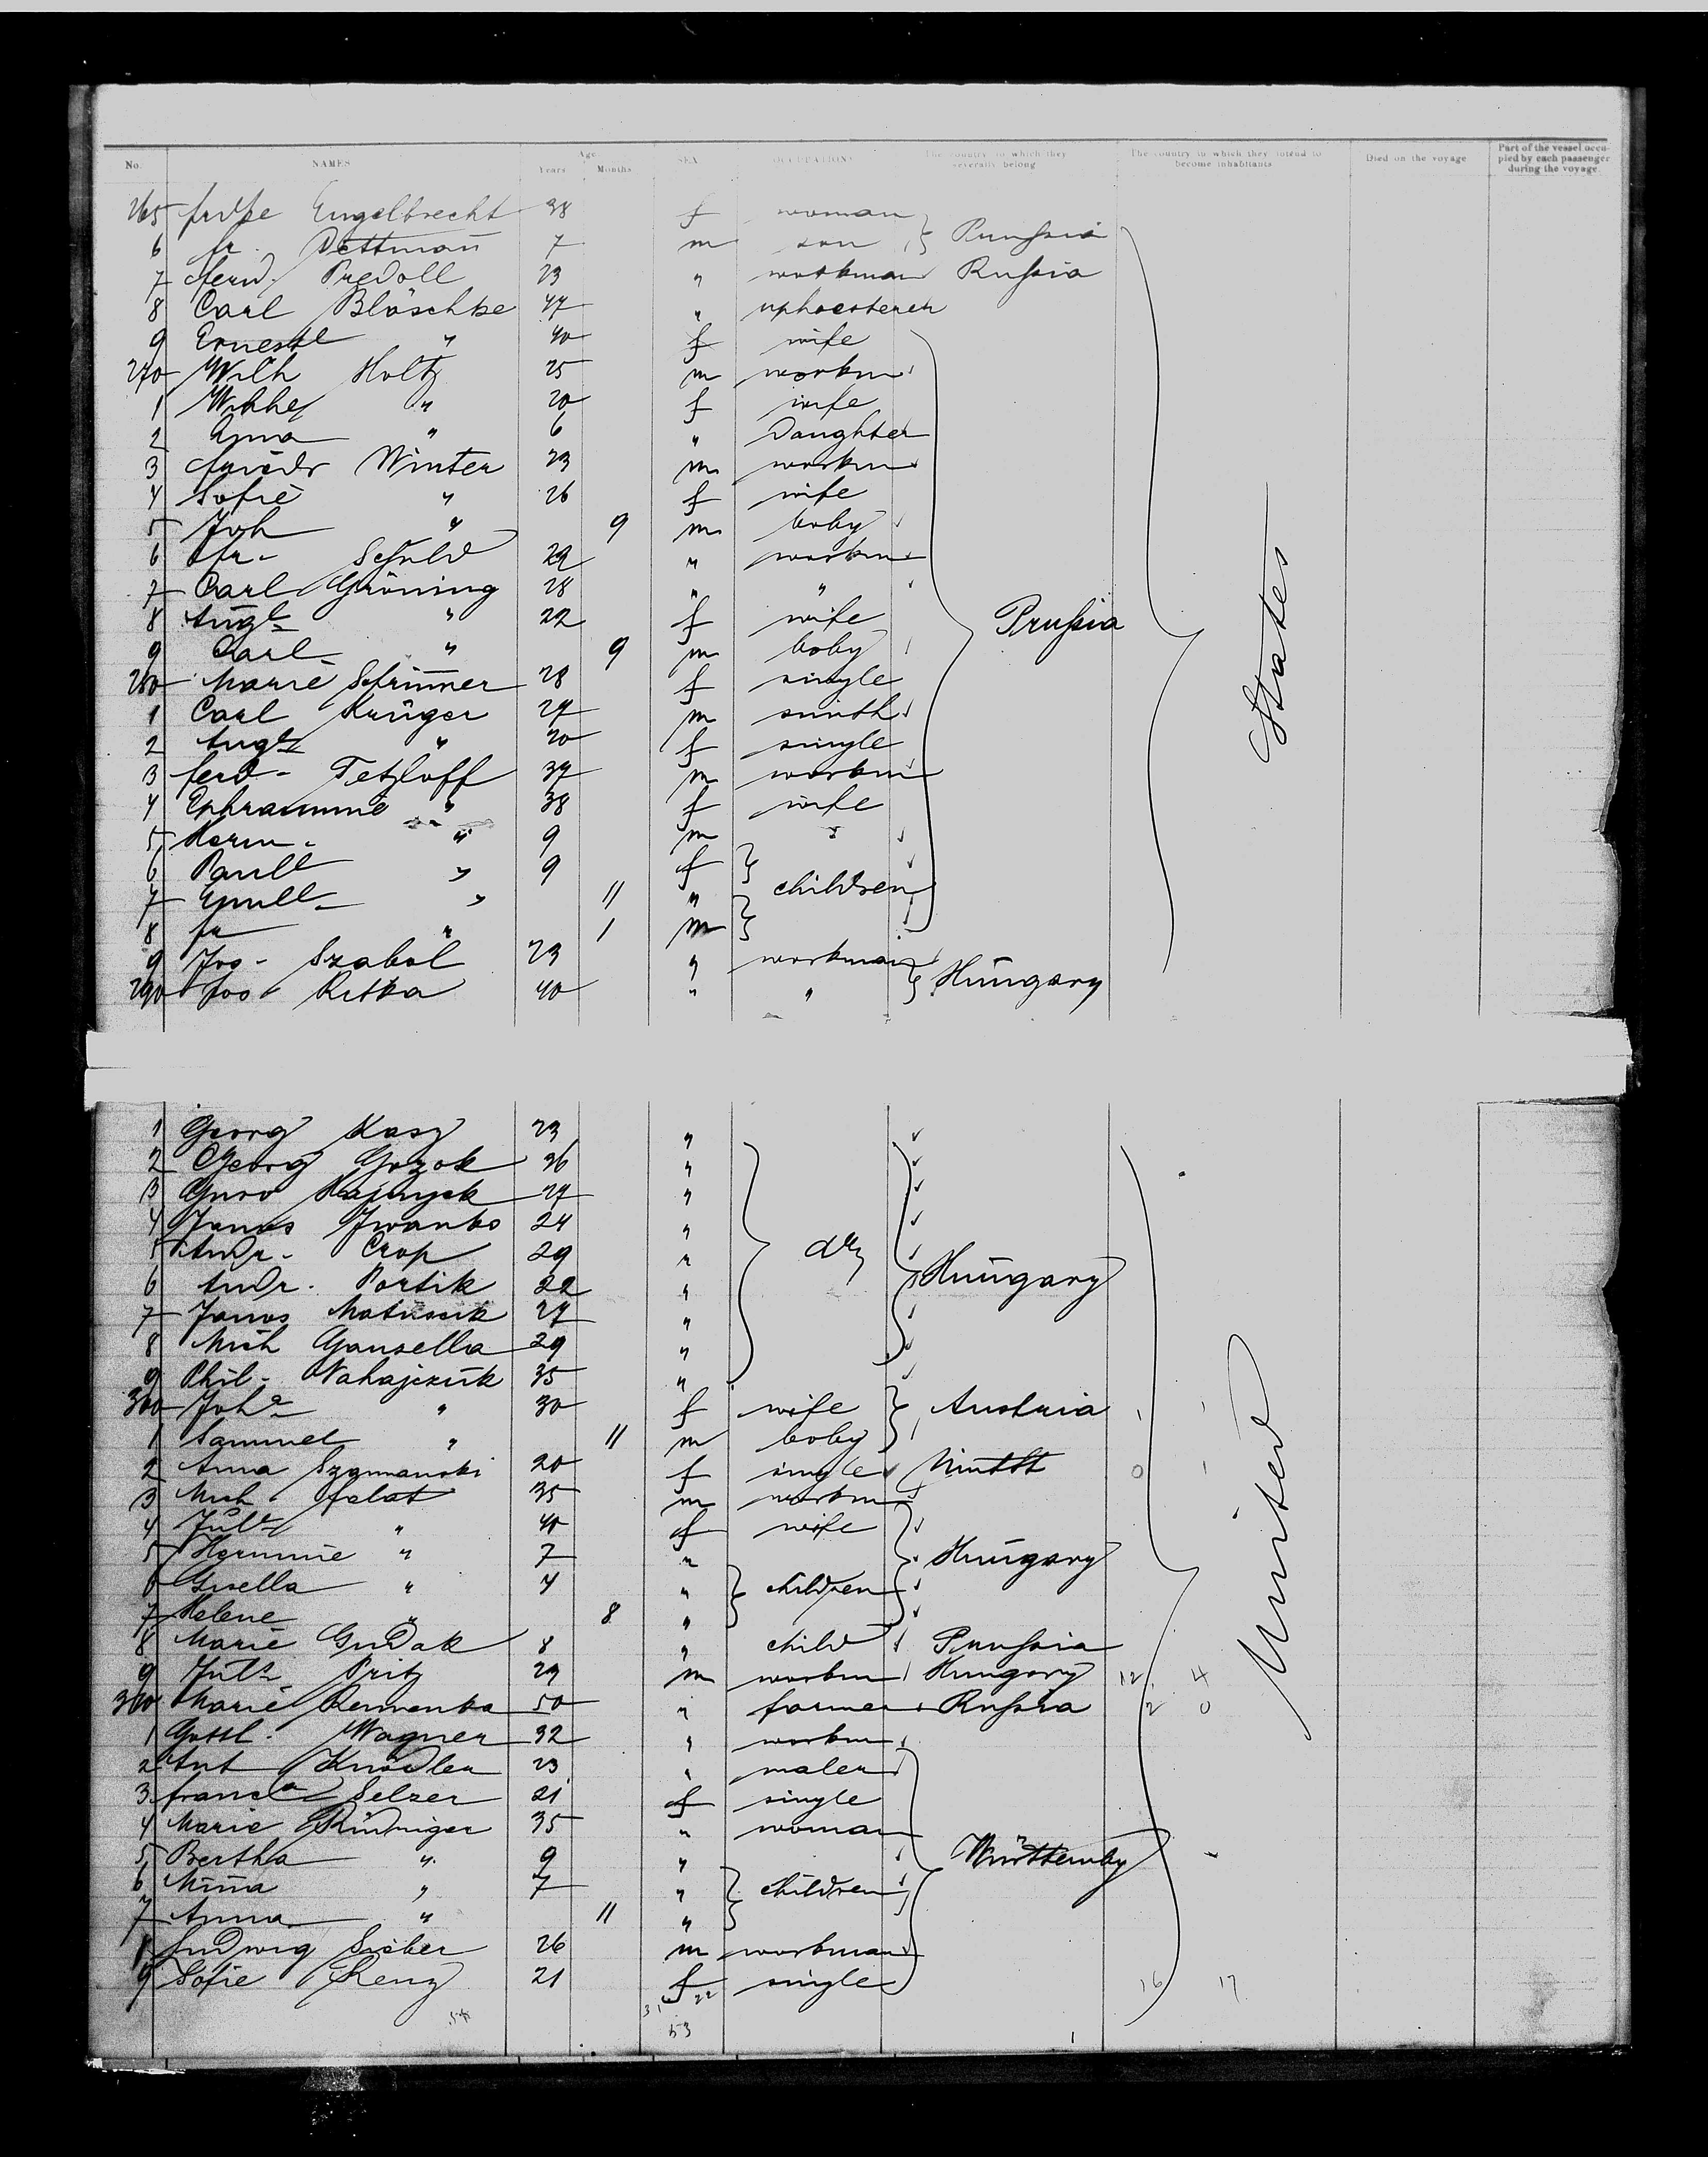 No. NAMES Age Years Months SEX OCCUPATIONS The country to which they severally belong The country to which they intend to become inhabitants Died on the voyage Part of the vessel occupied by each passenger during the voyage
265 Engelbrecht 38 f woman
6 fr. Dettman̄ 7 m son Prussia
7 ferd. Predoll 23 " workman Russia
8 Carl Bläschke 47 "
9 Ernestl " 40 f wife
270 Wilh Holtz 25 m workm
1 " 20 f wife
2 " 6 " Daughter
3 friedr Winter 23 m workm
4 Sofie " 26 f wife
5 Joh " 9 m boby
6 fr. Schuld 29 " workm
7 Carl Gröning 28 " "
8 Augte " 22 f wife Prussia
9 Carl " 9 m boby
280 Marie 28 f single
1 Carl Krüger 27 m smith
2 Augte " 20 f single States
3 ferd. Tetzloff 37 m workm
4 " 38 f wife
5 Herm. " 9 m
6 Paull " 9 f
7 " 11 " children
8 fr " 1 m
9 Jos. Szabol 23 " workman
290 Jos. Ritka 40 " " Hungary
1 Georg Kasz 23 "
2 Georg 36 "
3 27 "
4 Janos Iwanko 24 "
5 Andr. Crop 29 " do
6 Andr. Portik 22 " Hungary
7 Janos Matuscik 27 "
8 Mich Gansella 29 "
9 Phil. Nahajczuk 35 "
300 Joh " 30 f wife Austria
1 Sammel " 11 m boby
2 Anna Szymanski 20 f single
3 Mich. falat 35 m workm
4 Julie " 40 f wife
5 Hermine " 7 " Hungary
6 Gisella " 4 " children
7 Helene " 8 "
8 Marie Gudak 8 " child Prussia
9 Pritz 29 m workm Hungary 12 4
310 Marie 50 " farmer Russia 2 0
1 Gottl. Wagner 32 " workm United
2 Ant Knödler 23 " maler
3 Selzer 21 f single
4 Marie 35 " woman
5 Bertha " 9 " Württembg
6 Mina " 7 " children
7 Anna " 11 "
8 Ludwig Sieber 26 m workman
9 Sofie Renz 21 f single 16 17
54 31 22
53